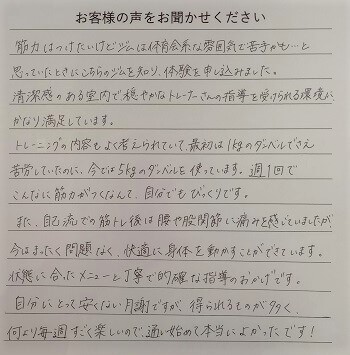 お客様の声をお聞かせください
筋力はつけたいけどジムは体育会系な雰囲気で苦手かも…と
思っていたときにこちらのジムを知り、体験を申し込みました。
清潔感のある室内で穏やかなトレーナーさんの指導を受けられる環境に、
かなり満足しています。
トレーニングの内容もよく考えられていて、最初は1kgのダンベルでさえ
苦労していたのに、今では5kgのダンベルを使っています。週1回で
こんなに筋力がつくなんて、自分でもびっくりです。
また、自己流での筋トレ後は腰や股関節に痛みを感じていましたが、
今はまったく問題なく、快適に身体を動かすことができています。
状態に合ったメニューと丁寧で的確な指導のおかげです。
自分にとって安くない月謝ですが、得られるものが多く、
何より毎週すごく楽しいので、通い始めて本当によかったです!